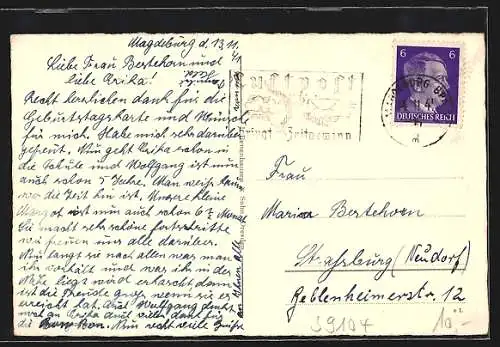 Magdeburg d. 13.11.41
Liebe Frau Bertehorn und
liebe Erika!
Recht herzlichen dank für die
Geburtstagskarte und Wünsche
für mich. Habe mich sehr darüber
gefreut. Nun geht Erika schon in
die Schule und Wolfgang ist nun
auch schon 5 Jahre. Man weiß kaum
wo die Zeit hin ist. Unsere kleine
Margot ist nun auch schon 6½ Monat
Sie macht sehr schöne Fortschritte
wir freuen uns alle darüber.
Nun langt sie nach allen was man
ihr vorhält und was ihr in der
Nähe liegt wird erhascht, dann
ist die Freude groß wenn sie es
erreicht hat. Auch Wolfgang denkt
noch an Erika und vielen dank für
die Bon-Bon. Nun recht viele Grüße
an Ihnen alle
Luftpost
bringt Zeitgewinn
6 6
DEUTSCHES REICH
MAGDEBURG
Frau
Maria Bertehorn
Straßburg (Neudorf)
Reblenheimerstr. 12
S9104
10.-